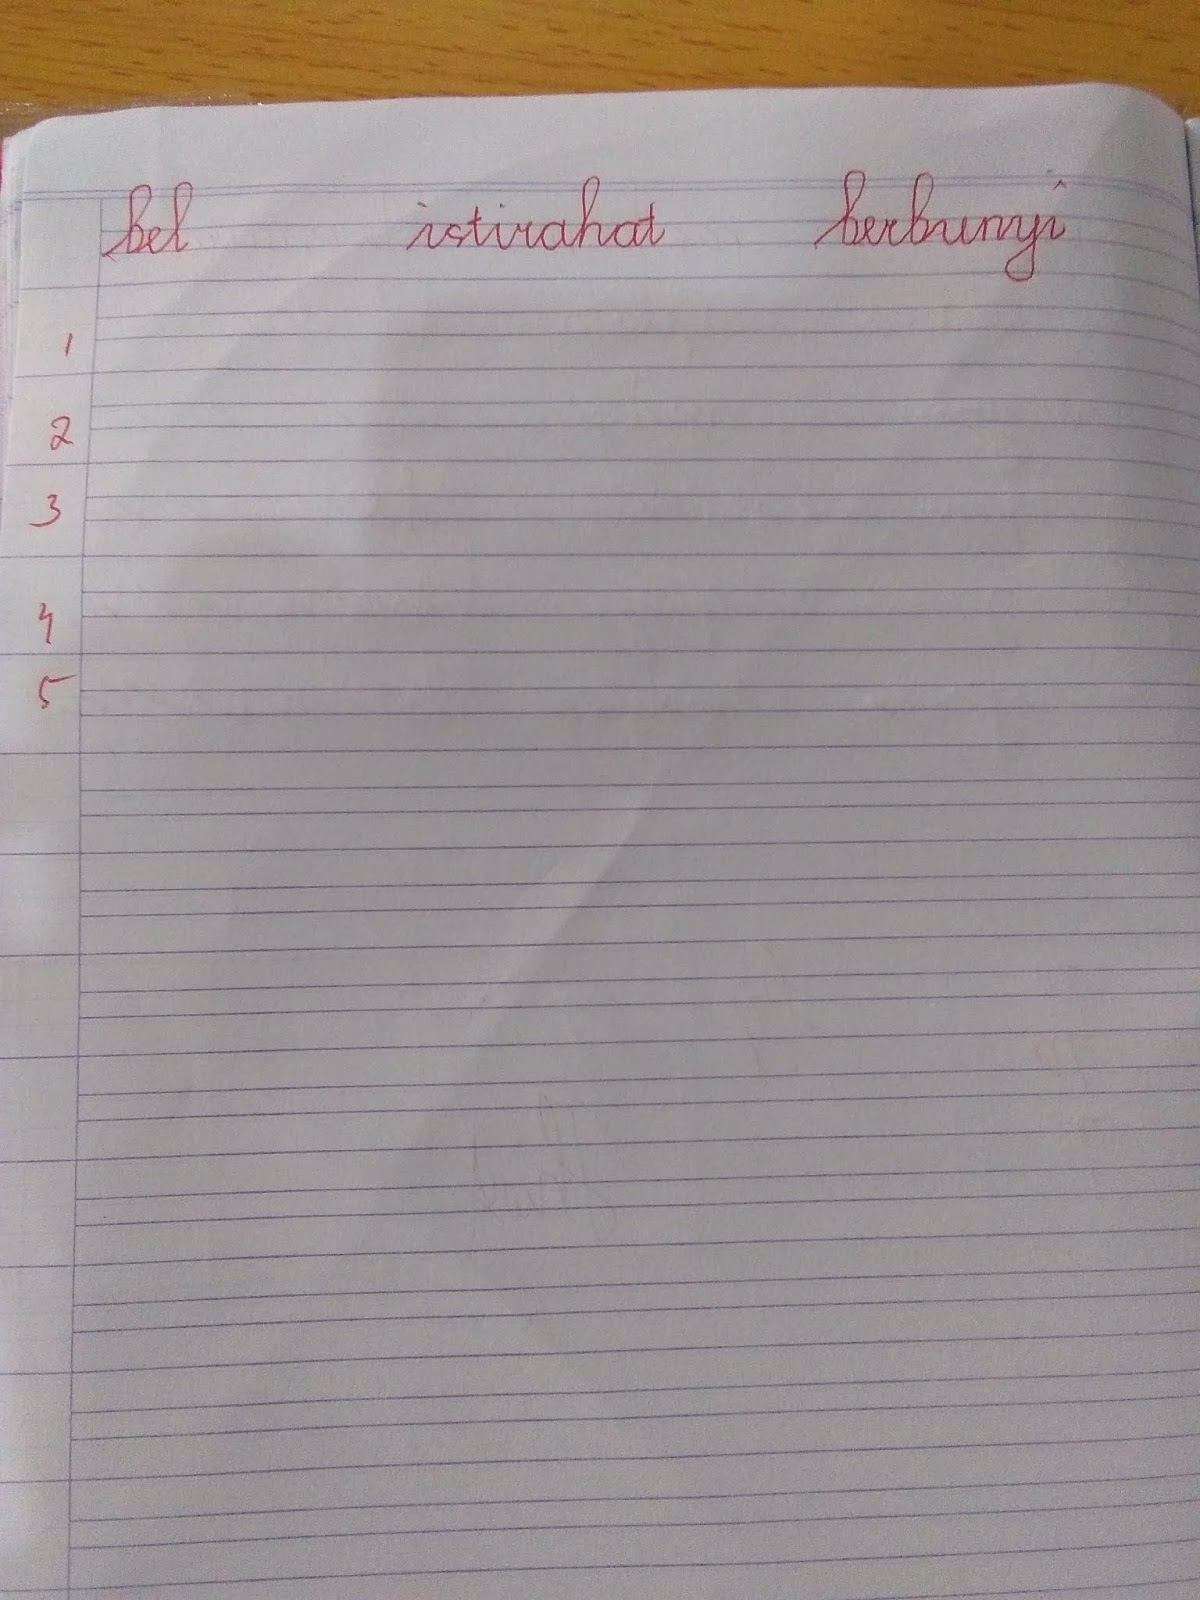 bel istirahat berbunyi
1
2
3
4
5